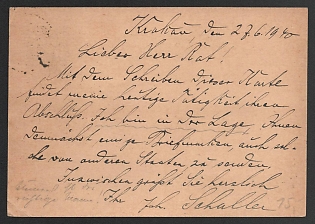 Krakau den 27.6.1940
Lieber Herr Rat!
Mit dem Schreiben dieser Karte
findet meine heutige Tätigkeit ihren
Abschluß. Ich bin in der Lage, Ihnen
demnächst einige Briefmarken, auch sol-
che von anderen Staaten zu senden.
Inzwischen grüßt Sie herzlich
Ihr Joh. Schaller